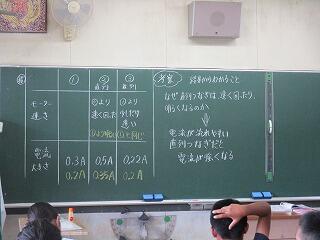 ①
②
直列
③
並列
モーター
速さ
①より
速く回た
①より
少しだけ
速い
①と同じ
電流
大きさ
0.3A
0.5A
0.22A
0.2A
0.35A
0.2A
考察
結果からわかること
なぜ直列つなぎは、速く回たり、
明るくなるのか
⇓
電流が流れやすい
直列つなぎだと
電流が強くなる